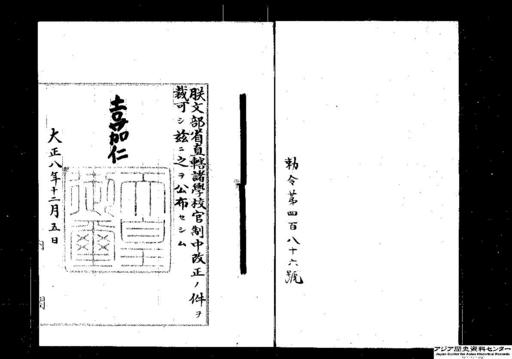 勅令第四百八十六號
朕文部省直轄諸學校官制中改正ノ件ヲ
裁可シ茲ニ之ヲ公布セシム
嘉仁
天皇御璽
大正八年十二月五日
内閣
アジア歴史資料センター
Japan Center for Asian Historical Records